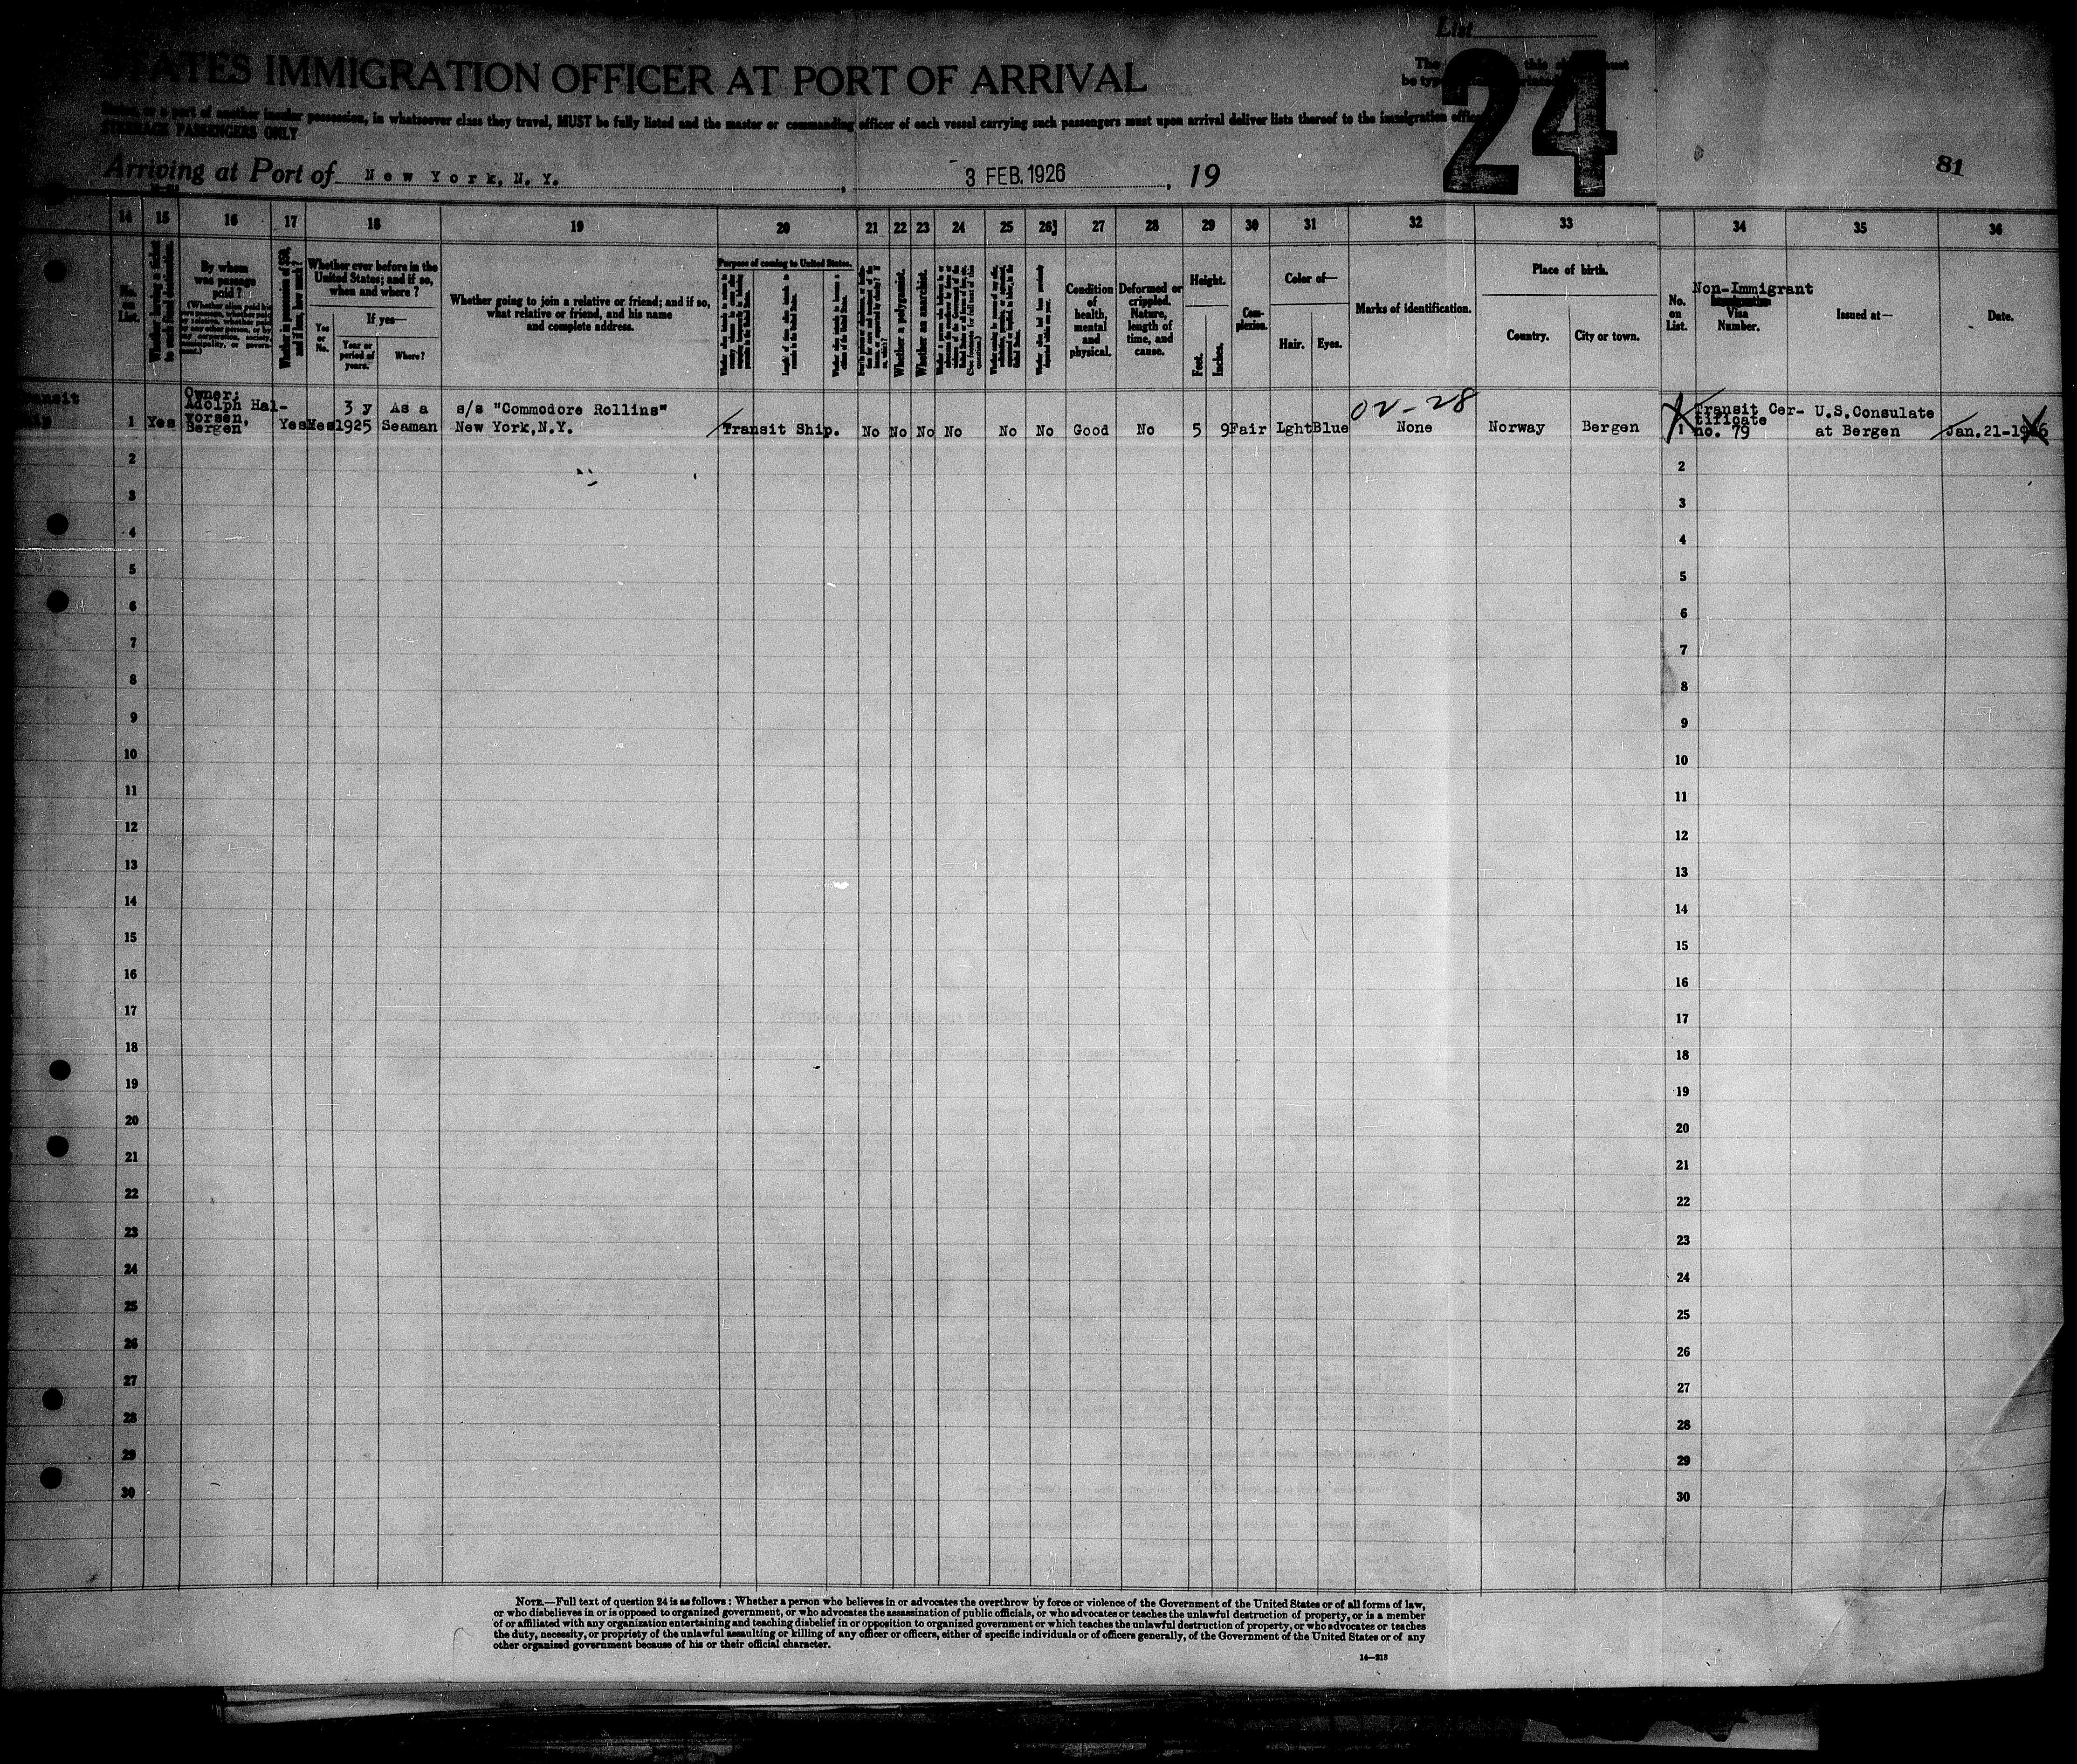 List
24
STATES IMMIGRATION OFFICER AT PORT OF ARRIVAL
a part of another insular possession, in whatsoever class they travel, MUST be fully listed and the master or commanding officer of each vessel carrying such passengers must upon arrival deliver lists thereof to the immigration
STEERAGE PASSENGERS ONLY
Arriving at Port of New York, N. Y. , 3 FEB. 1926 , 19
81
14 15 16 17 18 19 20 21 22 23 24 25 26 27 28 29 30 31 32 33 34 35 36
No. on List.
By whom was passage paid?
Whether ever before in the United States; and if so, when and where?
Yes or No.
If yes—
Year or period of years.
Where?
Whether going to join a relative or friend; and if so, what relative or friend, and his name and complete address.
Purpose of coming to United States.
Whether a polygamist.
Whether an anarchist.
Condition of health, mental and physical.
Deformed or crippled. Nature, length of time, and cause.
Height.
Feet.
Inches.
Complexion.
Color of—
Hair.
Eyes.
Marks of identification.
Place of birth.
Country.
City or town.
No. on List.
Non-Immigrant
Visa Number.
Issued at—
Date.
Owner;
Adolph Hal-
vorsen,
Bergen
1 Yes Yes Yes 3 y 1925 As a Seaman
s/s "Commodore Rollins"
New York,N.Y.
Transit Ship. No No No No No No Good No 5 9 Fair Lght Blue
02-28
None Norway Bergen
1 Transit Cer-
tificate
no. 79
U.S.Consulate
at Bergen
Jan.21-1926
2 2
3 3
4 4
5 5
6 6
7 7
8 8
9 9
10 10
11 11
12 12
13 13
14 14
15 15
16 16
17 17
18 18
19 19
20 20
21 21
22 22
23 23
24 24
25 25
26 26
27 27
28 28
29 29
30 30
NOTE.—Full text of question 24 is as follows: Whether a person who believes in or advocates the overthrow by force or violence of the Government of the United States or of all forms of law,
or who disbelieves in or is opposed to organized government, or who advocates the assassination of public officials, or who advocates or teaches the unlawful destruction of property, or is a member
of or affiliated with any organization entertaining and teaching disbelief in or opposition to organized government or which teaches the unlawful destruction of property, or who advocates or teaches
the duty, necessity, or propriety of the unlawful assaulting or killing of any officer or officers, either of specific individuals or of officers generally, of the Government of the United States or of any
other organized government because of his or their official character.
14—213